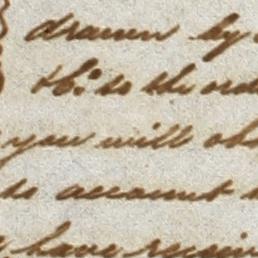 drawn by
to the ord
you will obs
to account
have receiv